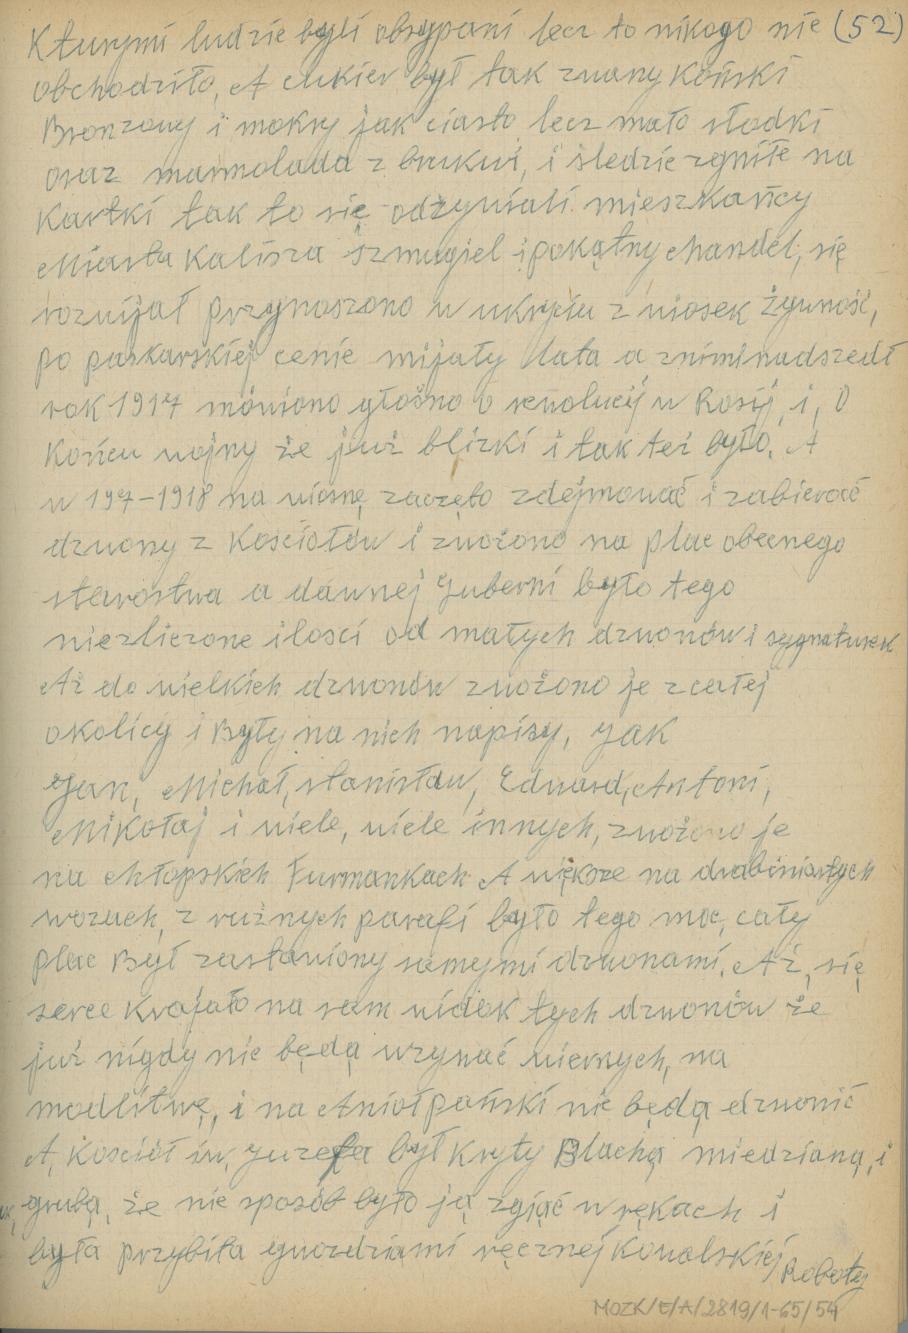 Kturymi ludzie byli obsypani lecz to nikogo nie (52)
obchodziło, A cukier był tak zwany Koński
Bronzowy i mokry jak ciasto lecz mało słodki
oraz marmolada z brukwi, i śledzie zgniłe na
Kartki tak to się odżywiali mieszkańcy
Miasta Kalisza szmugiel i pokątny Handel, się
rozwijał przynoszono w ukryciu z wiosek żywność,
po paskarskiej cenie mijały lata a znimi nadszedł
rok 1917 mówiono głośno o rewolucij w Rosij, i, O
Końcu wojny że już blizki i tak też było. A
w 1917-1918 na wiosnę zaczęto zdejmować i zabierać
dzwony z Kościołów i zwożono na plac obecnego
starostwa a dawnej Guberni było tego
niezliczone ilosci od małych dzwonów i sygnaturek
Aż do wielkich dzwonów zwożono je z całej
okolicy i Były na nich napisy, jak
Jan, Michał, stanisław, Edward, Antoni,
Mikołaj i wiele, wiele innych, zwożono je
na chłopskich Furmankach A większe na drabiniastych
wozach, z rużnych parafi było tego moc, cały
plac Był zastawiony samymi dzwonami. Aż, się
serce Krajało na sam widok tych dzwonów że
już nigdy nie będą wzywać wiernych, na
modlitwę, i na Anioł pański nie będą dzwonić
A, Kościół św, Juzefa był Kryty Blachą miedzianą, i
grubą, że nie sposób było ją zgiąć w rękach i
była przybita gwozdziami ręcznej Kowalskiej
Roboty
MOZK/E/A/2819/1-65/54